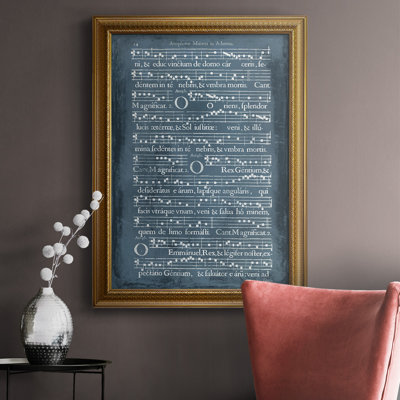 14 Antiphonæ Maiores in Aduentu.
ni, & educ vinctum de domo cár ceris, se-
dentem in te nebris, & vmbra mortis. Cant.
Magnificat. 2. O O riens, splendor
lucis æternæ, & Sol iustitiæ: veni, & illú
mina sedéntes in té nebris, & vmbra mortis.
Cant. Magnificat. 2. O Rex Gentium, &
desideratus e árum, lapísque angularis, qui
facis vtráque vnum, veni & salua hó minem,
quem de limo formasti. Cant. Magnificat. 2.
O Emmánuel, Rex, & légifer noster, ex-
pectátio Géntium, & saluátor e árū: veni ad